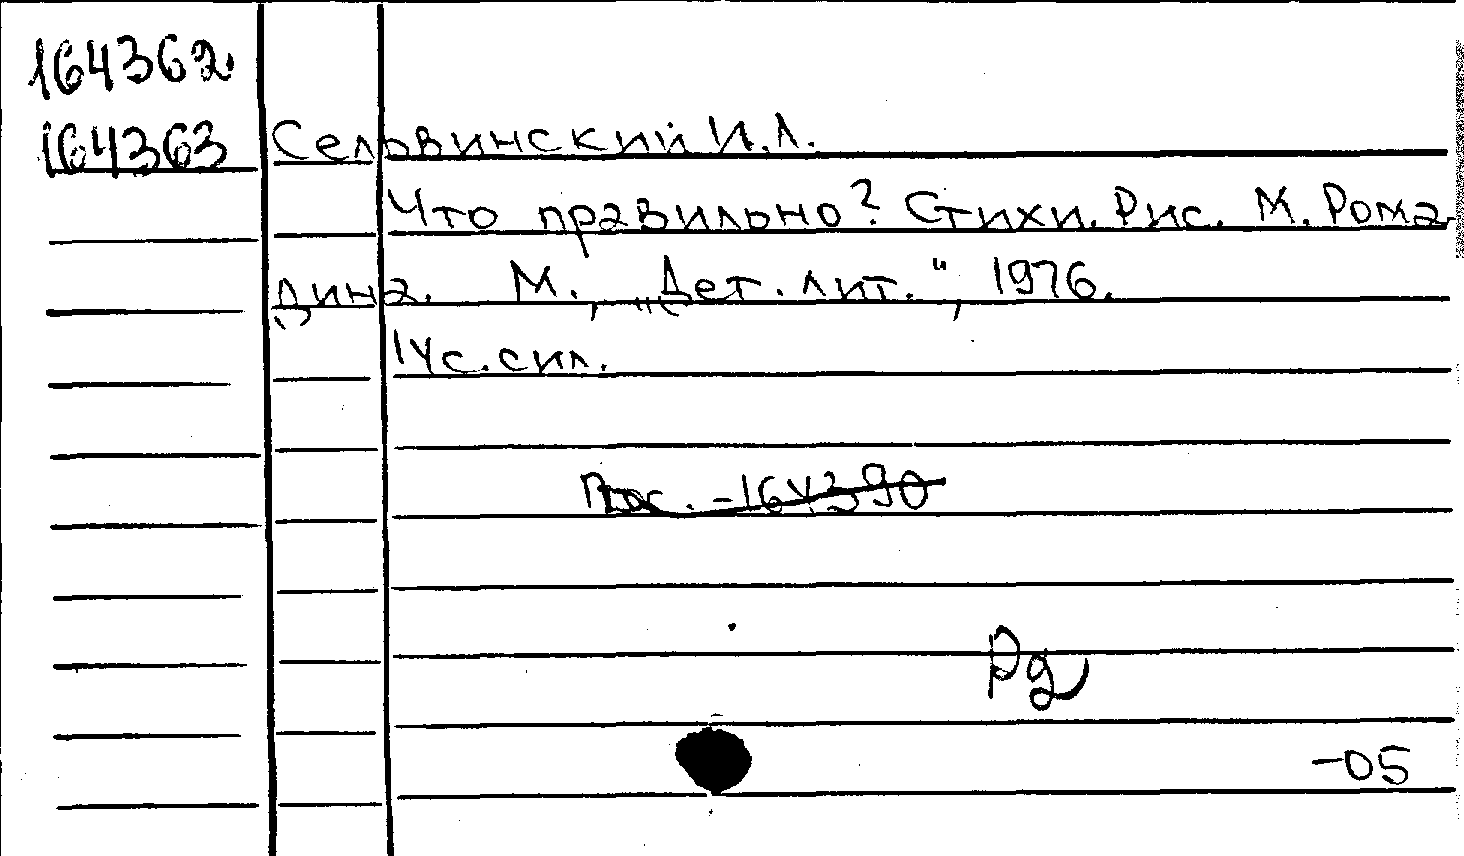 164362
164363 Сельвинский И.Л.
Что правильно? Стихи. Рис. М. Рома-
дина. М., „Дет. лит.", 1976.
14с. с ил.
164390
Рд
-05